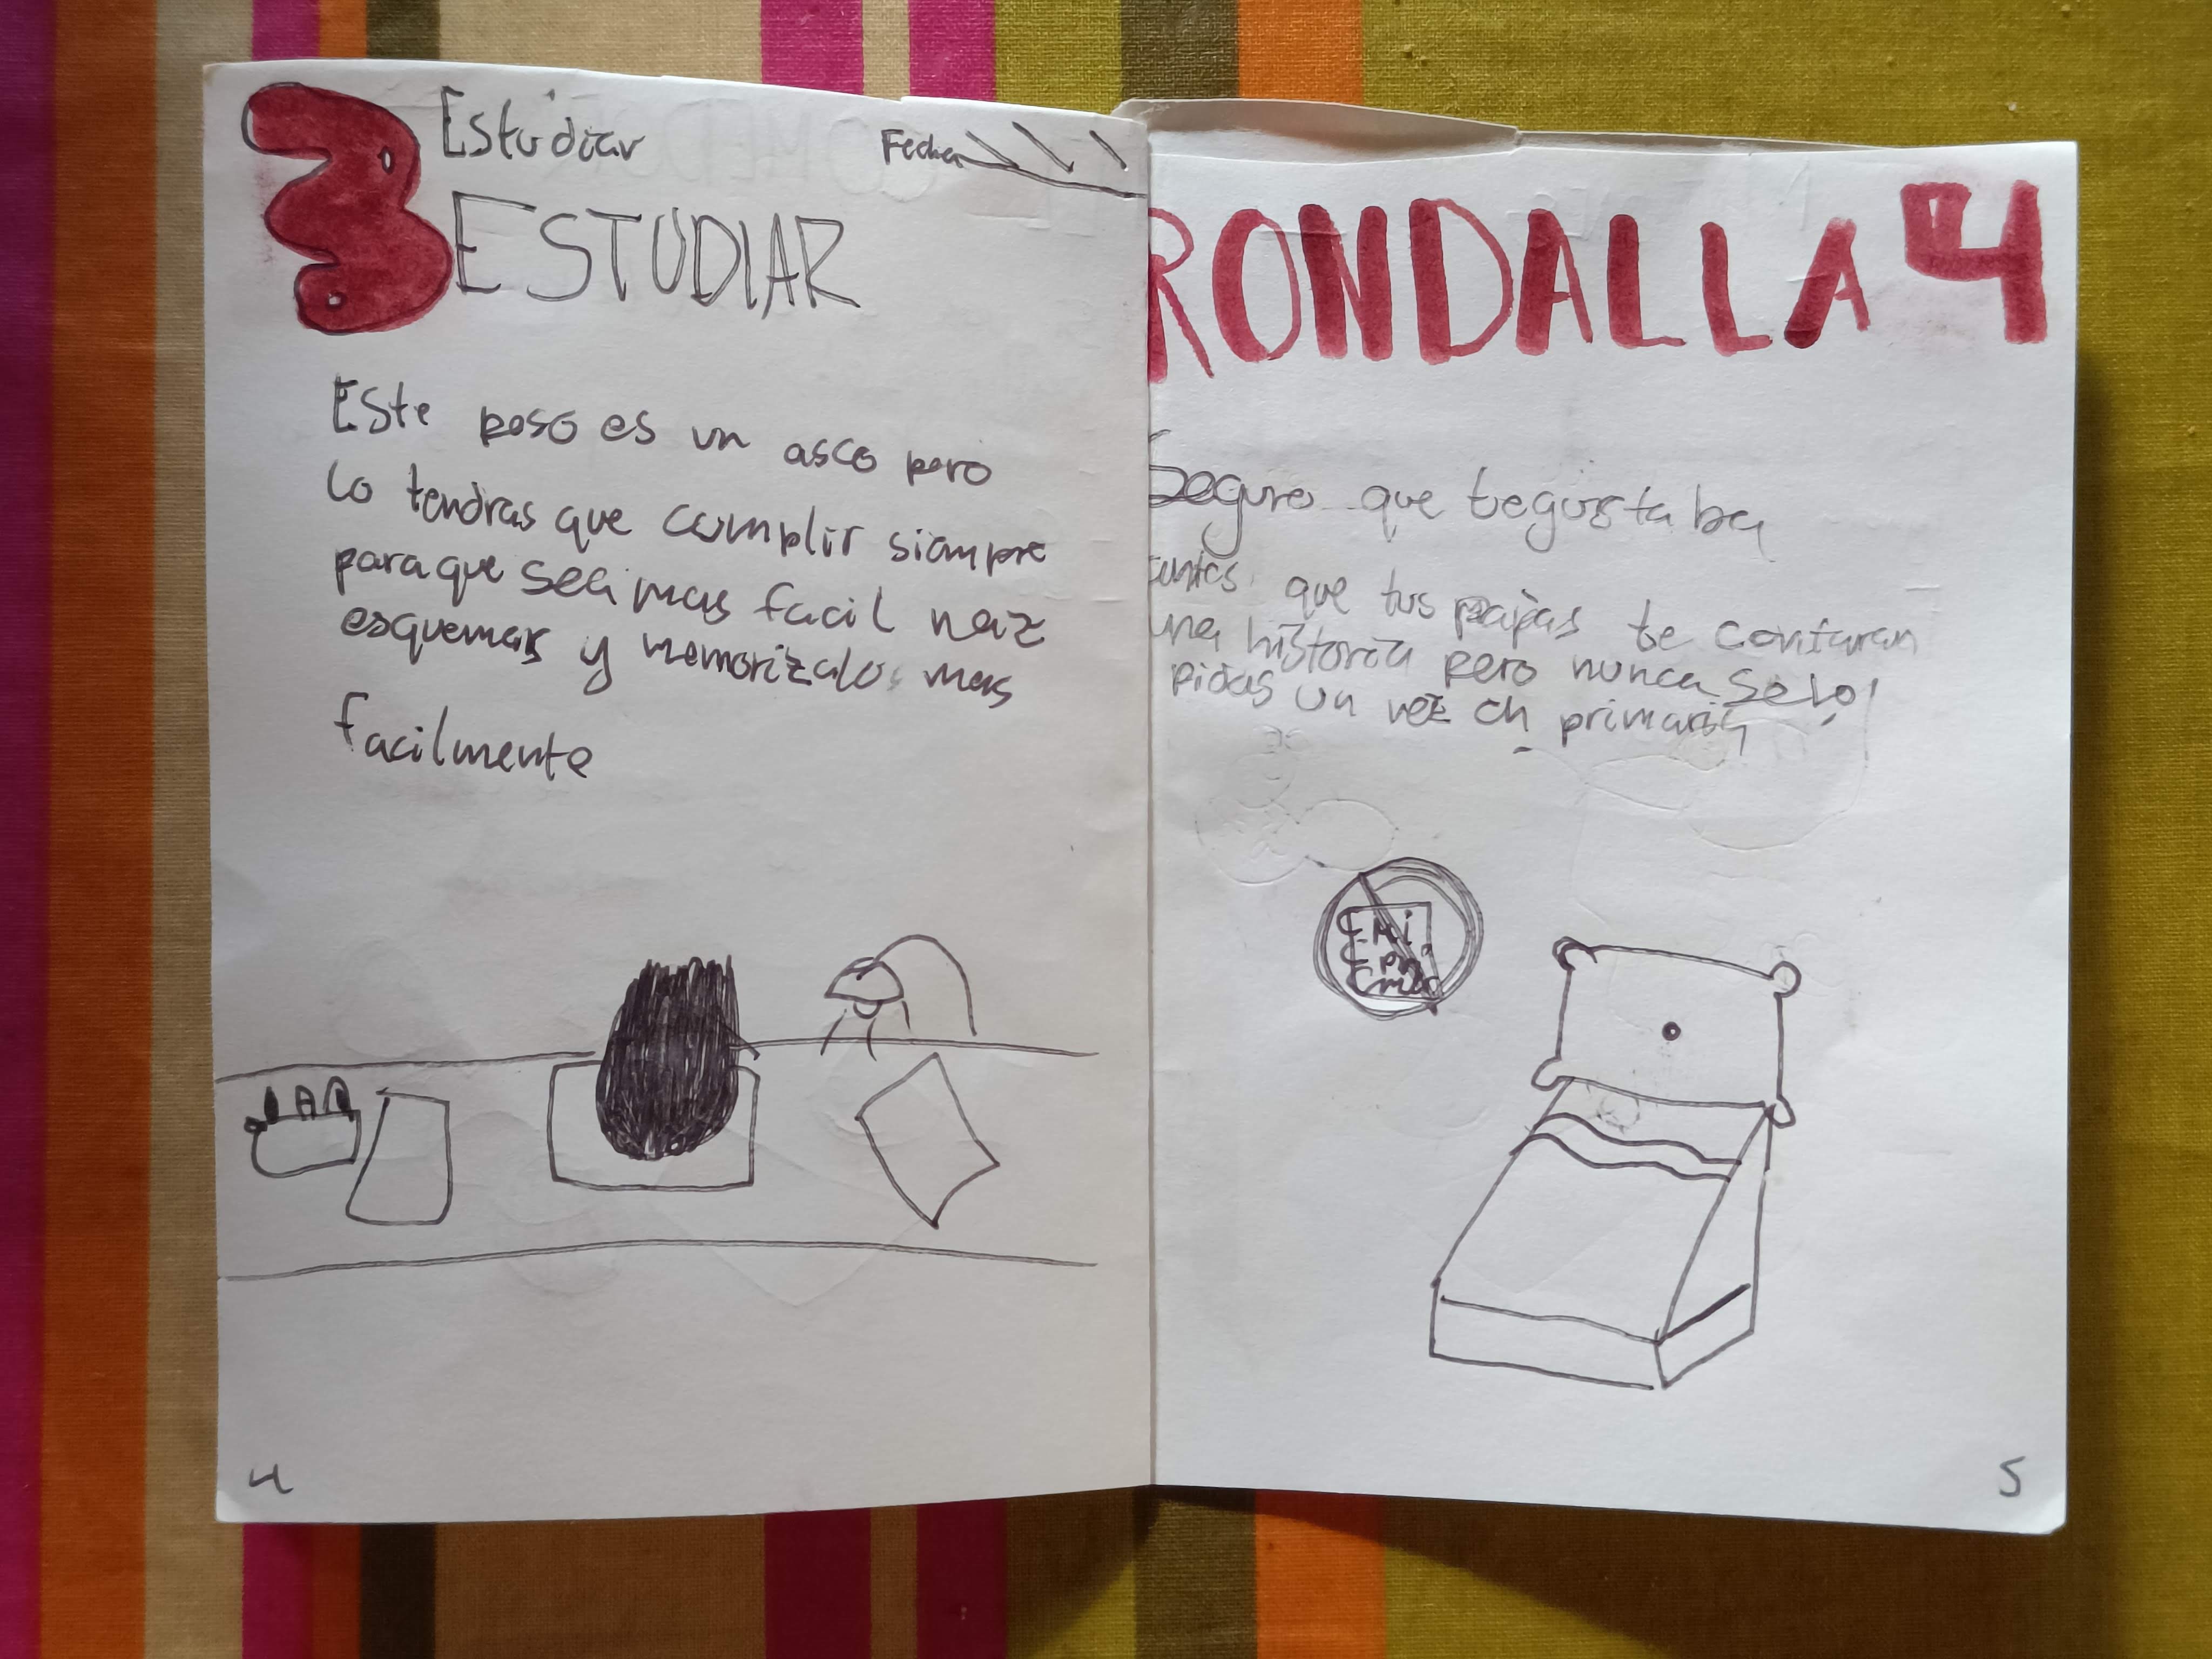 3 Estudiar
Fecha
ESTUDIAR
Este paso es un asco pero
lo tendras que cumplir siempre
para que sea mas facil haz
esquemas y memorizalos mas
facilmente
4
RONDALLA 4
Seguro que te gustaba
antes que tus papas te contaran
una historia pero nunca se lo
pidas un vez en primaria
5